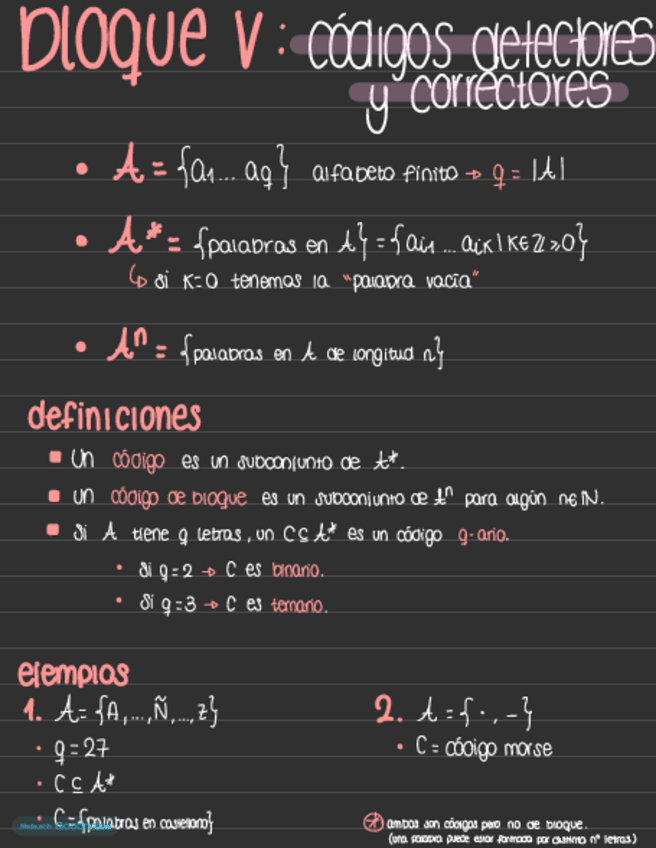 Bloque V: códigos detectores
y correctores
• A = {a1... aq} alfabeto finito → q = |A|
• A* = {palabras en A} = {ai1 ... aik | k ∈ ℤ ≥ 0}
↳ Si k=0 tenemos la "palabra vacía"
• Aⁿ = {palabras en A de longitud n}
definiciones
▪ Un código es un subconjunto de A*.
▪ un código de bloque es un subconjunto de Aⁿ para algún n∈ℕ.
▪ Si A tiene q letras, un C⊆A* es un código q-ario.
• Si q=2 → C es binario.
• Si q=3 → C es ternario.
ejemplos
1. A = {A,...,Ñ,...,z}
• q = 27
• C ⊆ A*
• C = {palabras en castellano}
2. A = {·, –}
• C = código morse
* ambos son códigos pero no de bloque.
(una palabra puede estar formada por distinto nº letras)